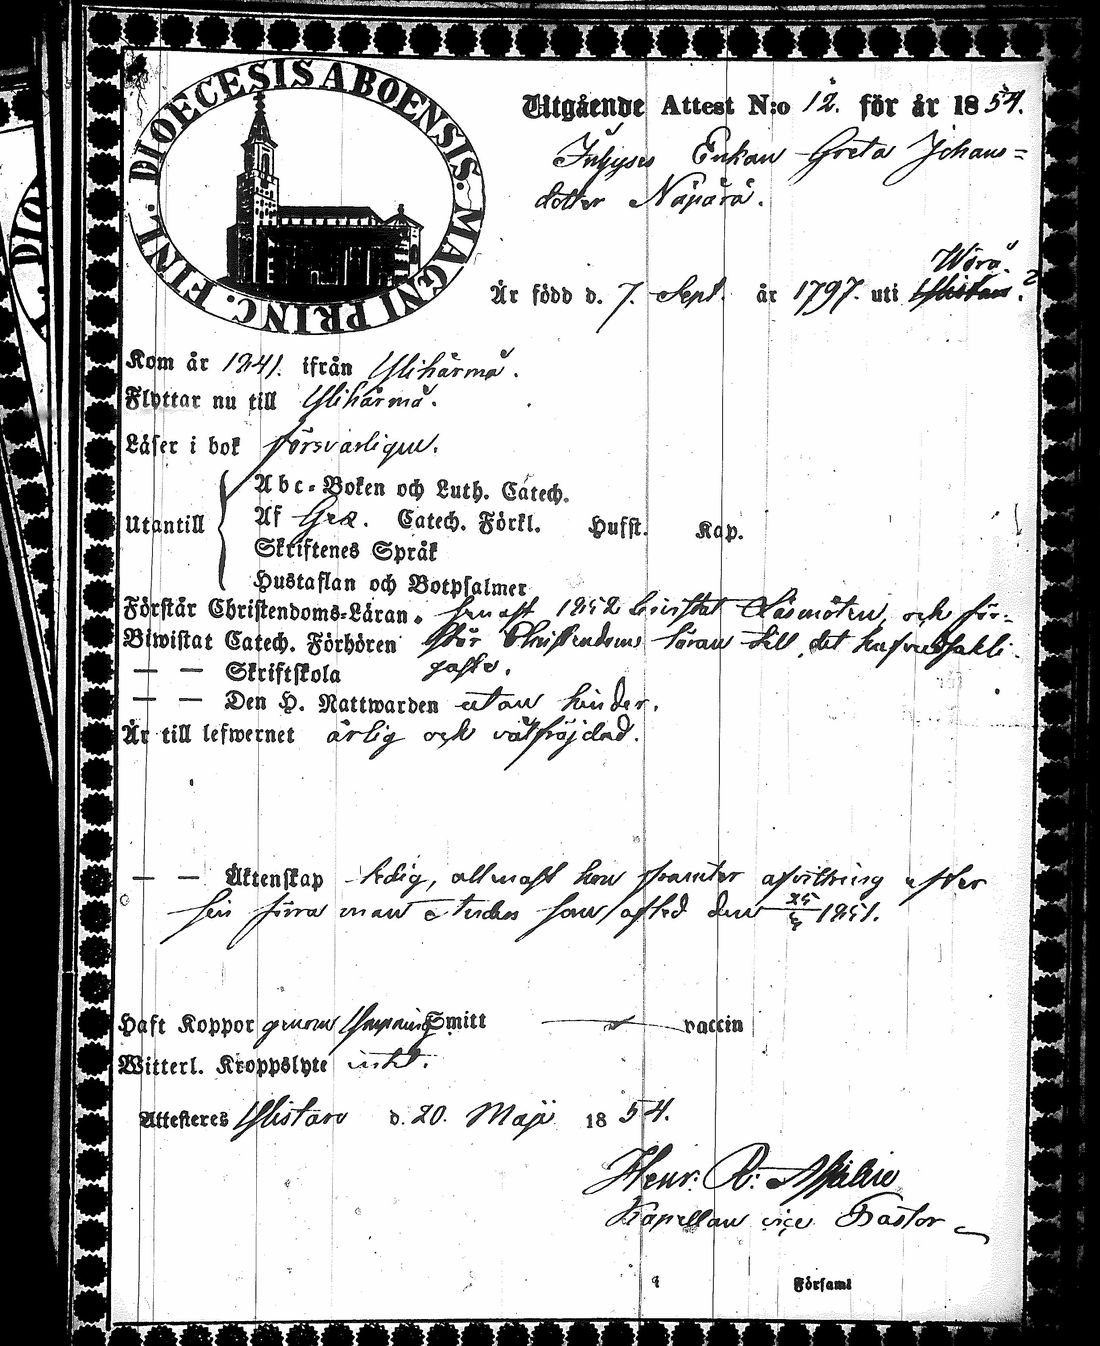 DIOECESIS ABOENSIS. MAGNI PRINC. FINL.
Utgående Attest N:o 12. för år 1854.
Inhyses Enkan Greta Johans=
dotter Näpärä.
Wörå
Är född d. 7. Sept. år 1797. uti Ylistaro. ?
Kom år 1841. ifrån Ylihärmä.
Flyttar nu till Ylihärmä.
Läser i bok försvarligen.
Utantill
Abc-Boken och Luth. Catech.
Af Catech. Förkl. Hufst. Kap.
Skriftenes Språk
Hustaflan och Botpsalmer
Förstår Christendoms-Läran. senast 1852 bivistat Läsmöten, och för-
Biwistat Catech. Förhören står Christendoms läran till det hufvudsakli-
— — Skriftskola gaste.
— — Den H. Nattwarden utan hinder.
Är till lefwernet ärlig och välfräjdad.
— — Äktenskap ledig, allenast hon framter afvittring efter
sin förra man som afled den 1851.
Haft Koppor genom Ympning Smitt vaccin
Witterl. Kroppslyte intet.
Attesteres Ylistaro d. 20. Maji 1854.
Henr. R:
Kapellan vice Pastor
Församl